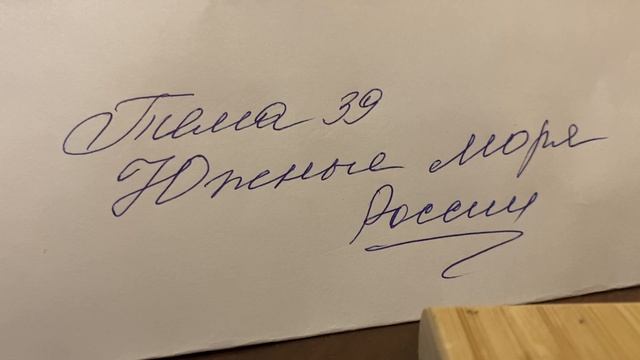 Тема 39
Южные моря
России